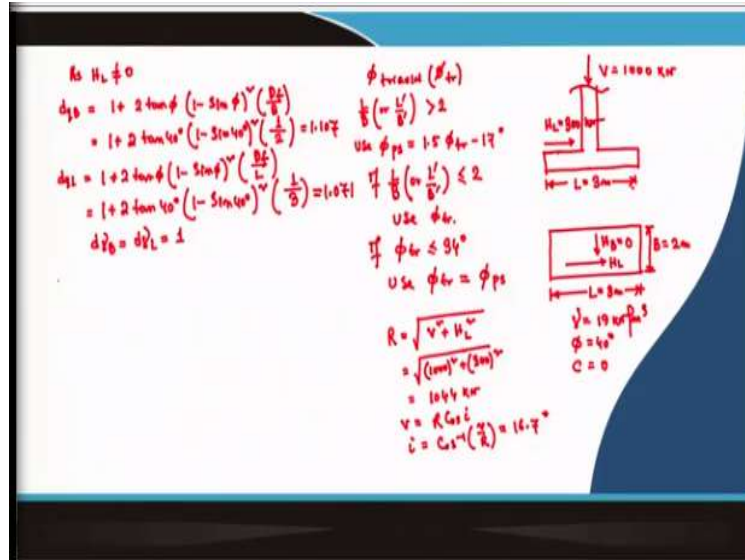 As H_L ≠ 0
dq_B = 1 + 2 tan φ (1 - Sin φ)² (Df/B)
= 1 + 2 tan 40° (1 - Sin 40°)² (1/2) = 1.107
dq_L = 1 + 2 tan φ (1 - Sin φ)² (Df/L)
= 1 + 2 tan 40° (1 - Sin 40°)² (1/3) = 1.071
dγ_B = dγ_L = 1
φ triaxial (φtr)
L/B (or L'/B') > 2
use φps = 1.5 φtr - 17°
If L/B (or L'/B') ≤ 2
use φtr.
If φtr ≤ 34°
use φtr = φps
R = √(V² + H_L²)
= √((1000)² + (300)²)
= 1044 KN
V = R Cos i
i = Cos⁻¹(V/R) = 16.7°
V = 1000 KN
H_L = 300 KN
L = 3m
H_B = 0
H_L
B = 2m
L = 3m
γ = 19 KN/m³
φ = 40°
C = 0